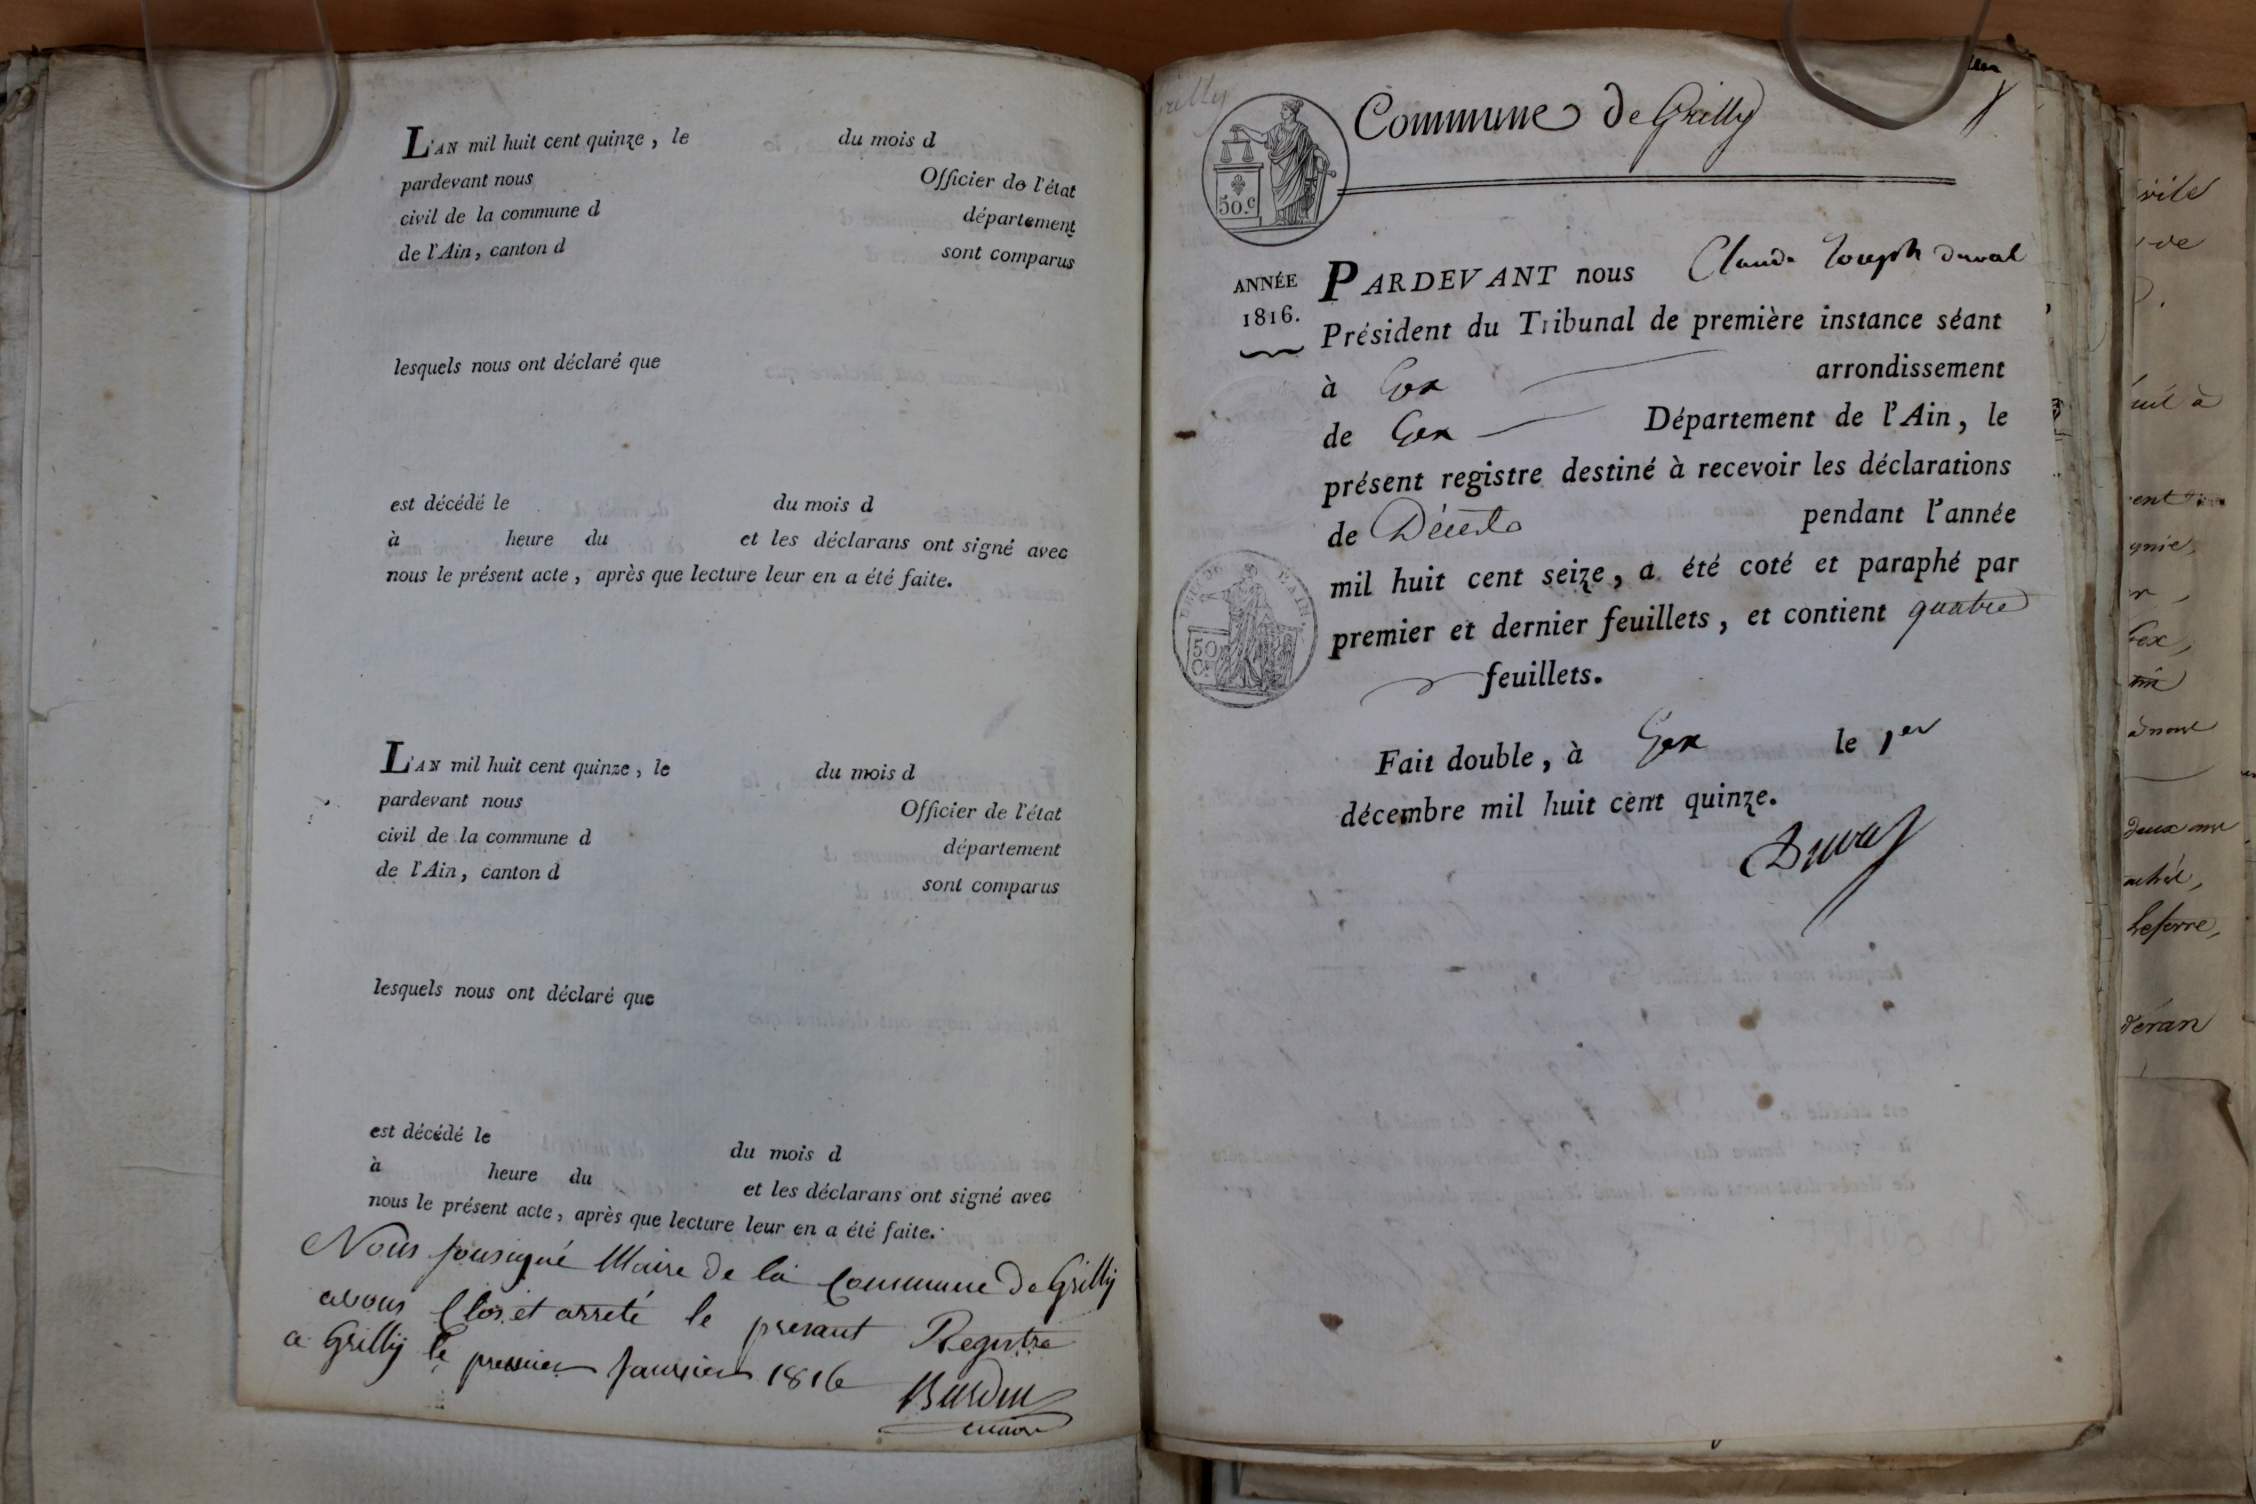 L'AN mil huit cent quinze, le du mois d
pardevant nous Officier de l'état
civil de la commune d département
de l'Ain, canton d sont comparus
lesquels nous ont déclaré que
est décédé le du mois d
à heure du et les déclarans ont signé avec
nous le présent acte, après que lecture leur en a été faite.
L'AN mil huit cent quinze, le du mois d
pardevant nous Officier de l'état
civil de la commune d département
de l'Ain, canton d sont comparus
lesquels nous ont déclaré que
est décédé le du mois d
à heure du et les déclarans ont signé avec
nous le présent acte, après que lecture leur en a été faite.
Nous sousigné Maire de la Commune de Grilly
avons Clos et arreté le presant Registre
a Grilly le premier Janvier 1816
Burdin
maire
Commune de Grilly
50.c
ANNÉE
1816.
PARDEVANT nous Claude Joseph duval
Président du Tribunal de première instance séant
à Gex arrondissement
de Gex Département de l'Ain, le
présent registre destiné à recevoir les déclarations
de Décès pendant l'année
mil huit cent seize, a été coté et paraphé par
premier et dernier feuillets, et contient quatre
feuillets.
50
Cs
Fait double, à Gex le 1er
décembre mil huit cent quinze.
Duval
civile
de
ent
Gex,
deux ans
Leferre,